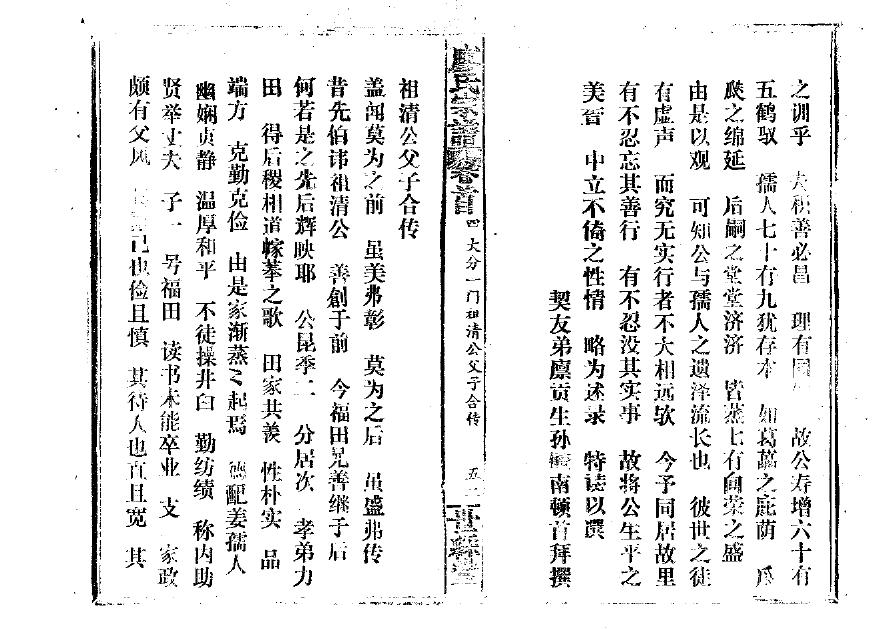 之训乎 夫积善必昌 理有固 故公寿增六十有
五鹤驭 孺人七十有九犹存本 如葛藟之庇荫 瓜
瓞之绵延 后嗣之堂堂济济 皆蒸上有向荣之盛
由是以观 可知公与孺人之遗泽流长也 彼世之徒
有虚声 而究无实行者不大相远欤 今予同居故里
有不忍忘其善行 有不忍没其实事 故将公生平之
美 中立不倚之性情 略为述录 特读以
契友弟廪贡生孙 南顿首拜撰
廖氏宗谱 卷首 四 大分一门祖清公父子合传 五
祖清公父子合传
盖闻莫为之前 虽美弗彰 莫为之后 虽盛弗传
昔先伯讳祖清公 善创于前 今福田兄善继于后
何若是之先后辉映耶 公昆季二 分居次 孝弟力
田 得后稷相道 家拳之歌 田家共羡 性朴实 品
端方 克勤克俭 由是家渐蒸々起焉 德配姜孺人
幽娴贞静 温厚和平 不徒操井臼 勤纺绩 称内助
贤举丈夫 子一 号福田 读书未能卒业 支 家政
颇有父风 己也俭且慎 其待人也直且宽 其